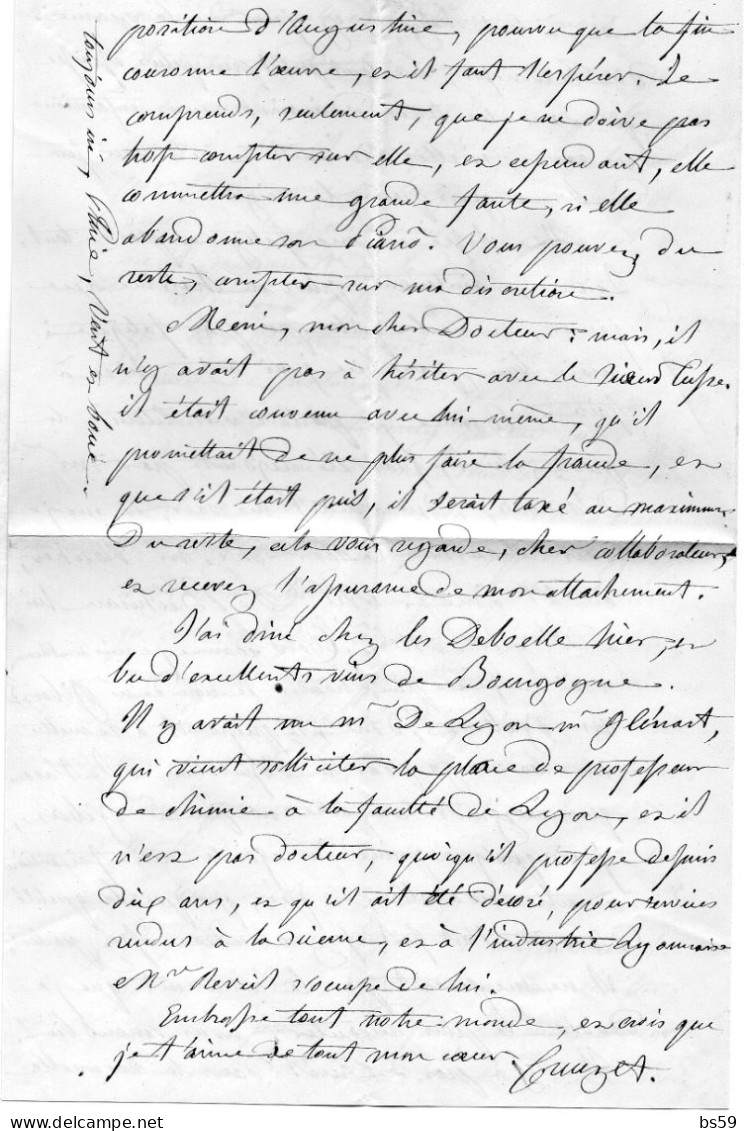 position d'Augustine, pourvu que la fin
couronne l'œuvre, et il faut l'espérer. Je
comprends, seulement, que je ne doive pas
trop compter sur elle, et cependant, elle
commettra une grande faute, si elle
abandonne son Piano. Vous pouvez, du
reste, compter sur ma discretion.
Merci, mon cher Docteur : mais, il
n'y avait pas à hésiter avec le sieur
il était convenu avec lui-même, qu'il
promettait de ne plus faire la fraude, et
que s'il était pris, il serait taxé au maximum.
Du reste, cela vous regarde, cher collaborateur,
et recevez l'assurance de mon attachement.
J'ai diné chez les Deboelle hier, et
bu d'excellents vins de Bourgogne.
Il y avait un Mr De Lyon Mr Glénart,
qui vient solliciter la place de professeur
de chimie à la faculté de Lyon, et il
n'est pas docteur, quoiqu'il professe depuis
dix ans, et qu'il ait été décoré, pour services
rendus à la science, et à l'industrie Lyonnaise
Mr Reveil s'occupe de lui.
Embrasse tout notre monde, et crois que
je t'aime de tout mon cœur.
toujours ici, Pluie, Vent et boue.
bs59